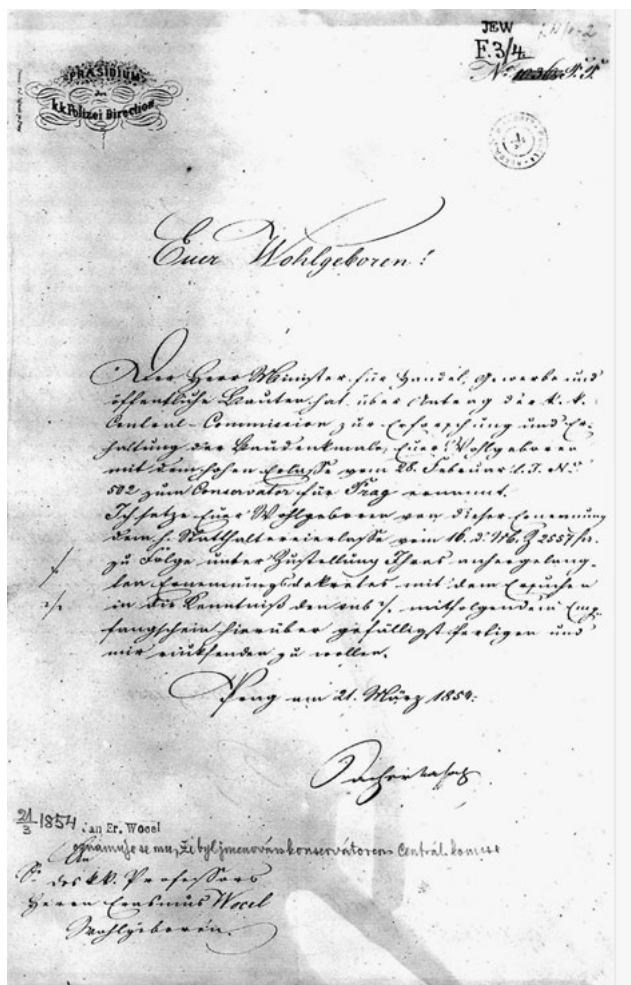 JEW
F. 3/4.
PRÄSIDIUM
der
k.k. Polizei Direction
Euer Wohlgeboren!
Der Herr Minister für Handel, Gewerbe und
öffentliche Bauten hat über Antrag der k. k.
Central-Commission zur Erforschung und Er-
haltung der Baudenkmale, Euer Wohlgeboren
mit dem hohen Erlasse vom 28. Februar l. J. No
502 zum Conservator für Prag ernannt.
Ich setze Euer Wohlgeboren von dieser Ernennung
dem h. Statthaltereierlasse vom 16. d. Mts. Z 2557
zu Folge unter Zustellung Ihres anhergelang-
ten Ernennungsdekretes mit dem Ersuchen
in die Kenntniß den sub ·/. mitfolgenden Emp-
fangschein hierüber gefälligst fertigen und
mir rücksenden zu wollen.
Prag am 21. März 1854.
Sacher Masoch
21/3 1854 Jan Er. Wocel
oznámuje se mu, že byl jmenován konservátorem Centrál. komise
An
Sr des k.k. Professors
Herrn Erasmus Wocel
Wohlgeboren.